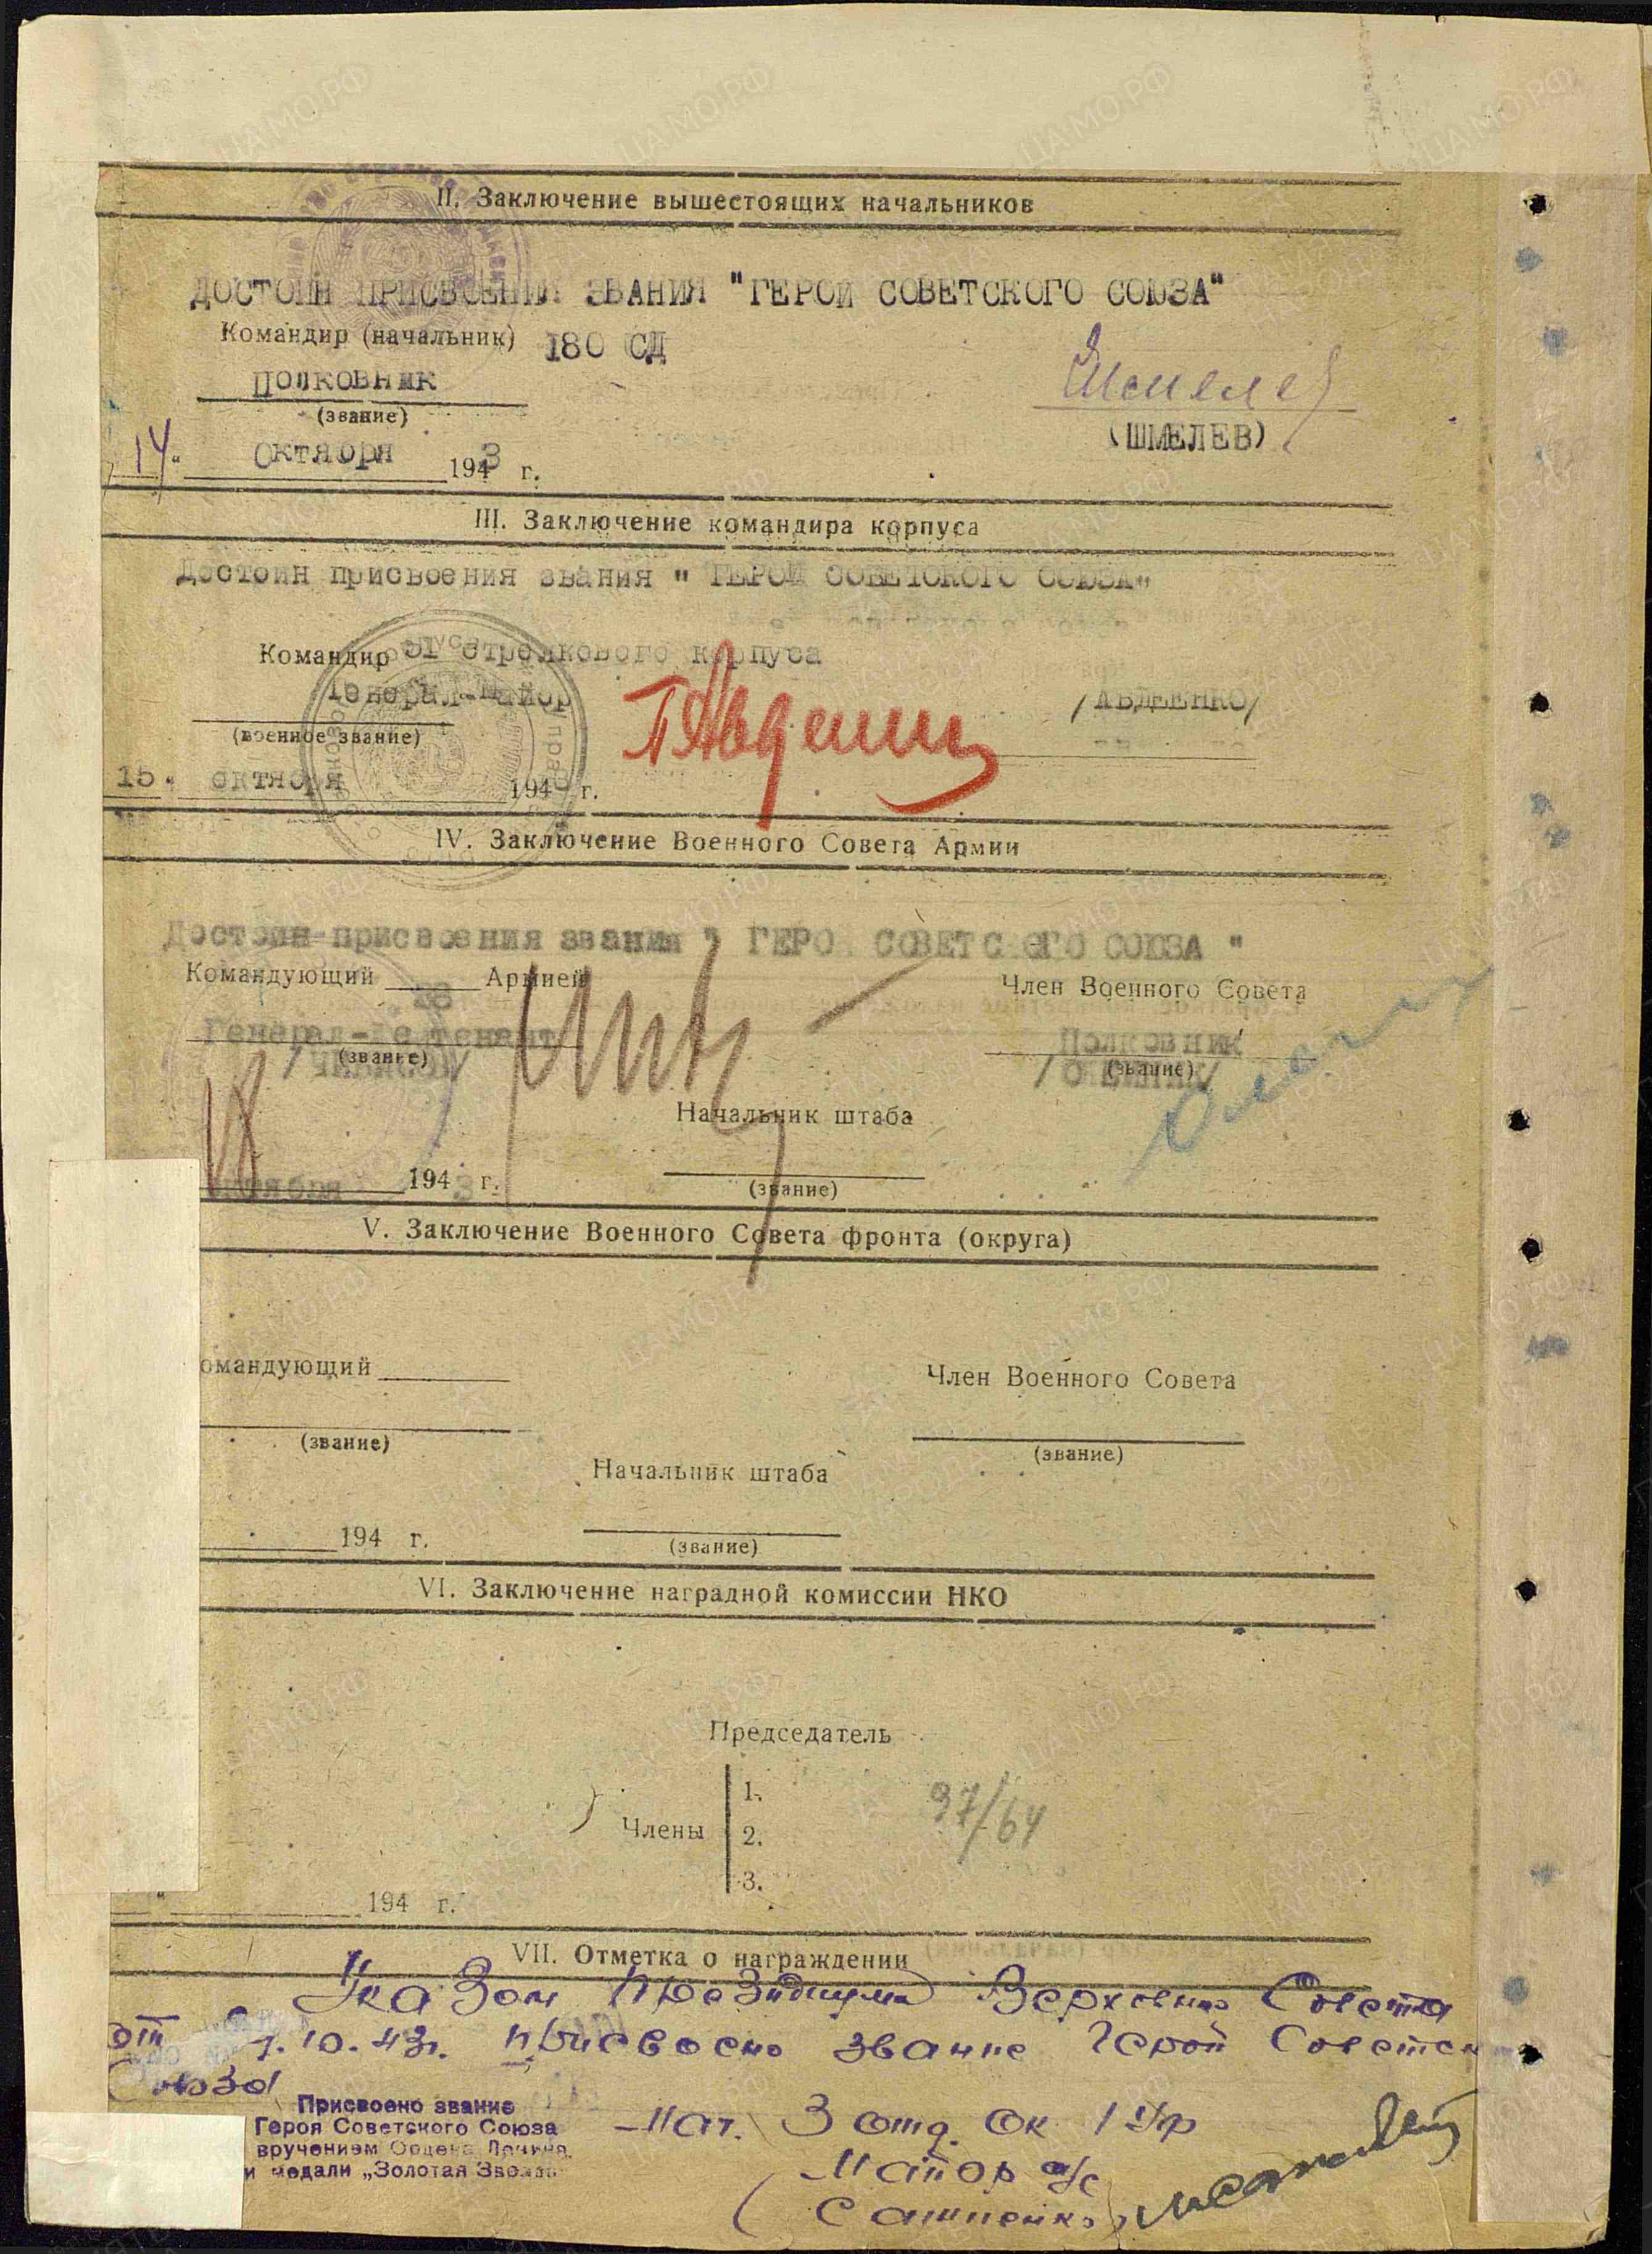 II. Заключение вышестоящих начальников
ДОСТОИН ПРИСВОЕНИЯ ЗВАНИЯ "ГЕРОЙ СОВЕТСКОГО СОЮЗА"
Командир (начальник) 180 СД
Полковник
(звание)
(ШМЕЛЕВ)
"14" Октября 1943 г.
III. Заключение командира корпуса
Достоин присвоения звания " ГЕРОЙ СОВЕТСКОГО СОЮЗА"
Командир 51 стрелкового корпуса
Генерал-майор
/АВДЕЕНКО/
(военное звание)
15. октября 194 г.
IV. Заключение Военного Совета Армии
Достоин присвоения звания " ГЕРО СОВЕТСКОГО СОЮЗА "
Командующий 38 Армией
Член Военного Совета
Генерал-лейтенант
Полковник
(звание)
(звание)
/ЧИБИСОВ/
Начальник штаба
18 октября 1943 г.
(звание)
V. Заключение Военного Совета фронта (округа)
омандующий
Член Военного Совета
(звание)
(звание)
Начальник штаба
194 г.
(звание)
VI. Заключение наградной комиссии НКО
Председатель
Члены
1.
2.
3.
37/64
194 г.
VII. Отметка о награждении
Указом Президиума Верховно Совета
от 10.43г. присвоено звание Герой Советск
Союза
Присвоено звание
Героя Советского Союза
вручением Ордена Ленина
и медали „Золотая Звезда
Нач. 3 отд. ОК 1 Уф
Майор а/с